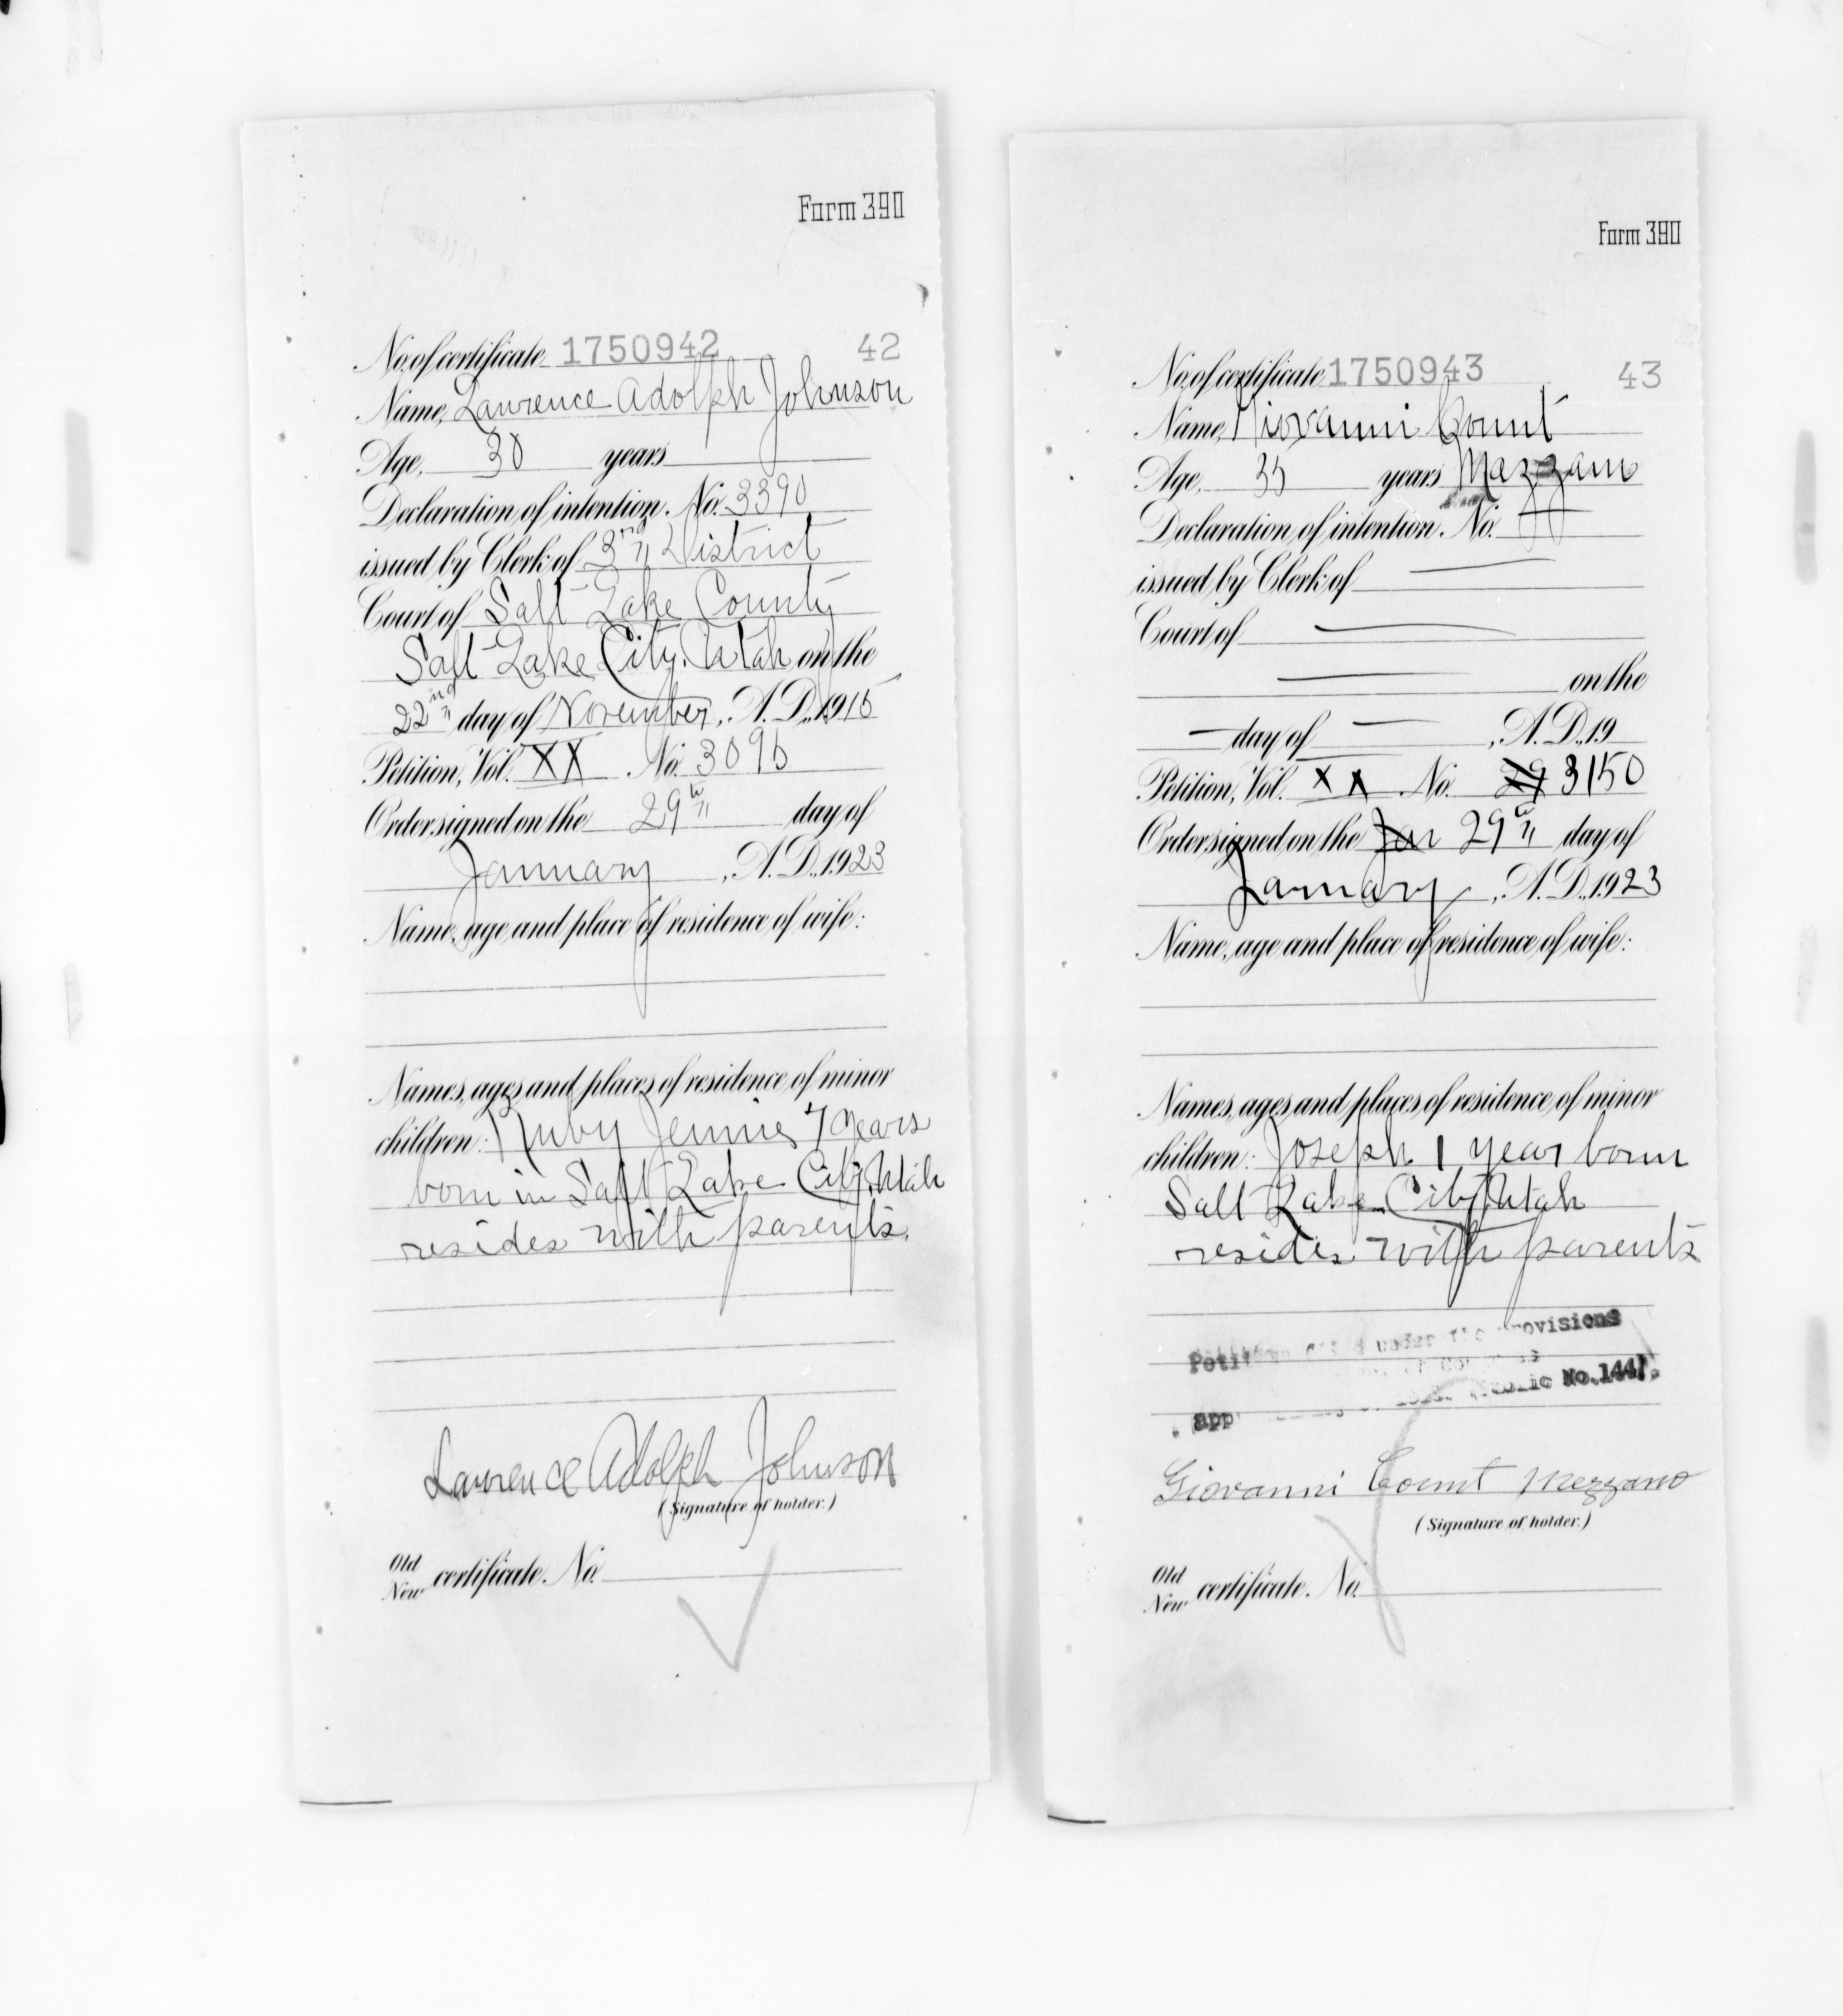 Form 390
No. of certificate 1750942 42
Name, Lawrence Adolph Johnson
Age, 30 years
Declaration of intention, No. 3390
issued by Clerk of 3rd District
Court of Salt Lake County
Salt Lake City, Utah on the
22nd day of November, A.D., 1915
Petition, Vol. XX No. 3095
Order signed on the 29th day of
January, A.D., 1923
Name, age and place of residence of wife:
Names, ages and places of residence of minor
children: Ruby Jennie 7 years
born in Salt Lake City, Utah
resides with parents.
Lawrence Adolph Johnson
(Signature of holder.)
Old
New certificate, No.
Form 390
No. of certificate 1750943 43
Name, Giovanni Count
Age, 35 years Mazzano
Declaration of intention, No.
issued by Clerk of —
Court of —
— on the
— day of —, A.D., 19
Petition, Vol. XX No. 29 3150
Order signed on the Jan 29th day of
January, A.D., 1923
Name, age and place of residence of wife:
Names, ages and places of residence of minor
children: Joseph 1 year born
Salt Lake City, Utah
resides with parents
Petition under provisions
app (Public No. 144).
Giovanni Count Mezzano
(Signature of holder.)
Old
New certificate, No.